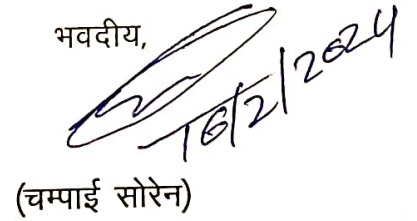 भवदीय,
16/2/2024
(चम्पाई सोरेन)